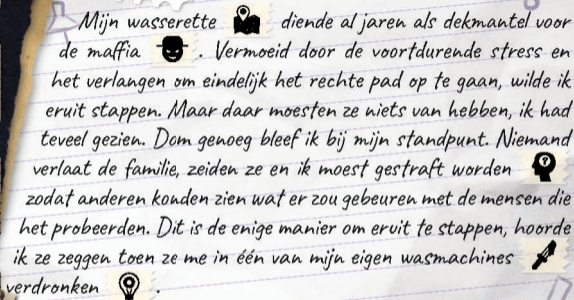 Mijn wasserette diende al jaren als dekmantel voor
de maffia . Vermoeid door de voortdurende stress en
het verlangen om eindelijk het rechte pad op te gaan, wilde ik
eruit stappen. Maar daar moesten ze niets van hebben, ik had
teveel gezien. Dom genoeg bleef ik bij mijn standpunt. Niemand
verlaat de familie, zeiden ze en ik moest gestraft worden
zodat anderen konden zien wat er zou gebeuren met de mensen die
het probeerden. Dit is de enige manier om eruit te stappen, hoorde
ik ze zeggen toen ze me in één van mijn eigen wasmachines
verdronken .